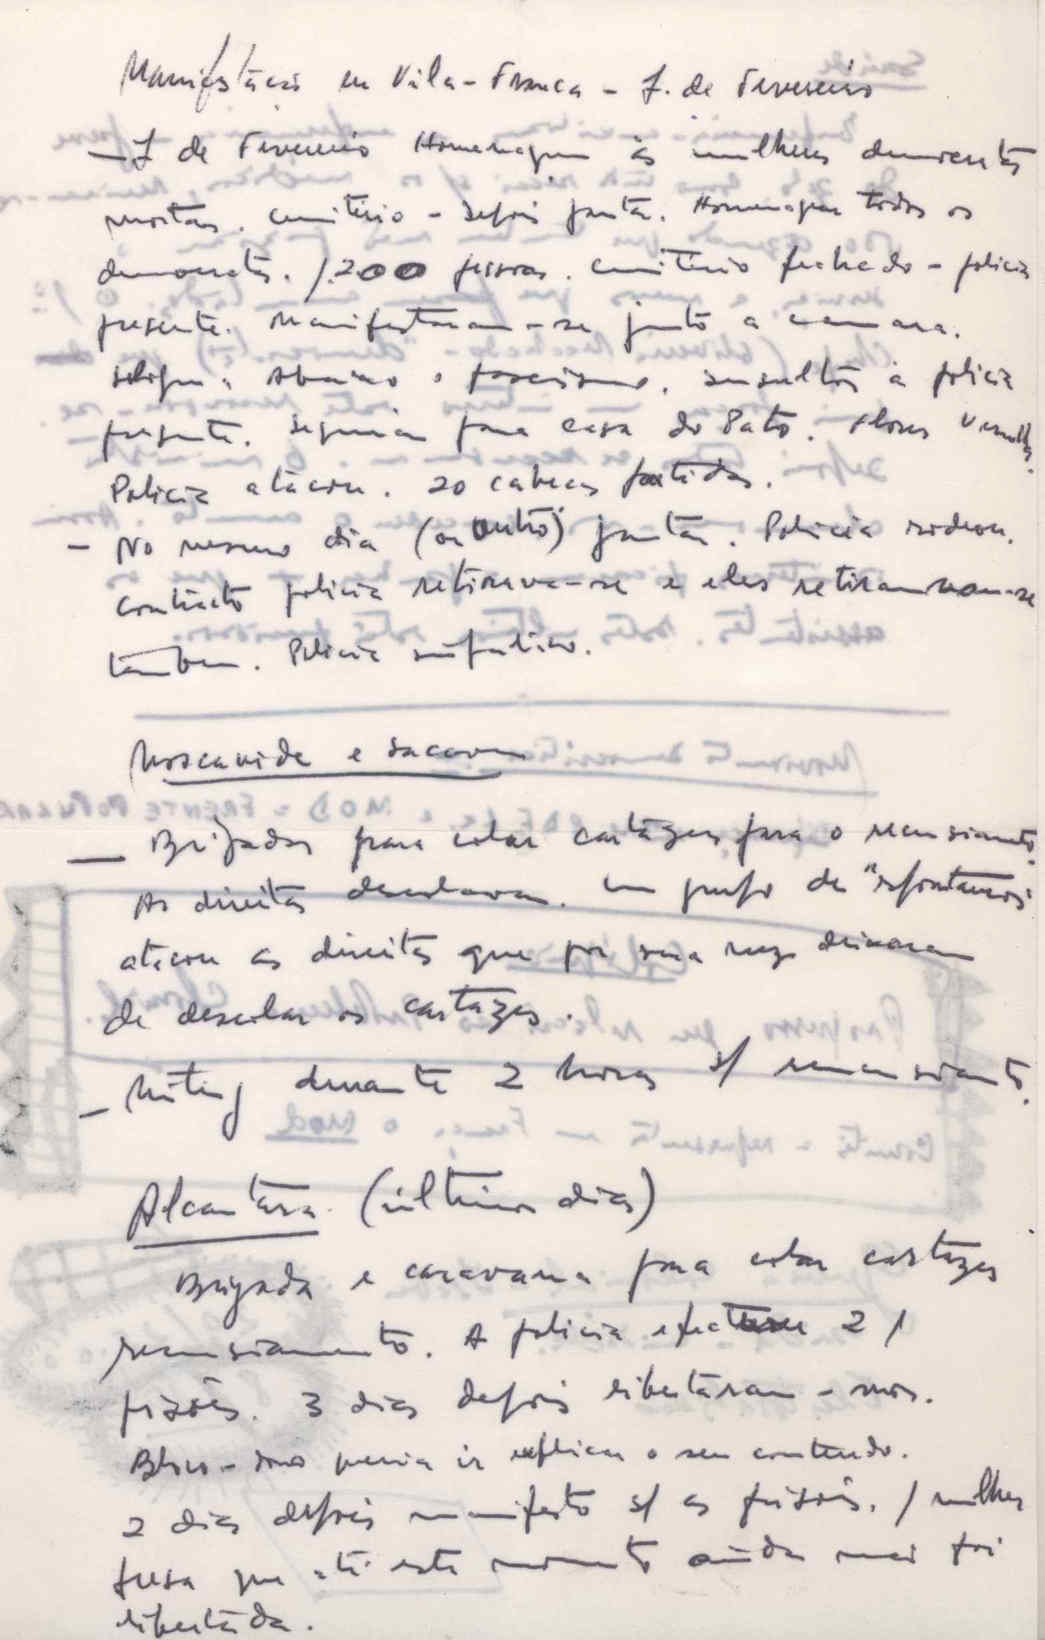 Manifestação em Vila-Franca - 1. de Fevereiro
- 1 de Fevereiro Homenagem às mulheres democratas
mortas. cemitério - depois jantar. Homenagem todos os
democratas. 1.200 pessoas. cemitério fechado - policia
presente. Manifestaram-se junto a camara.
Abaixo o fascismo. insultos à policia
presente. Seguiram para casa do Pato. Flores Vermelhas.
Policia atacou. 20 cabeças partidas.
- No mesmo dia (ou outro) jantar. Policia rodeou.
Contacto policia retirava-se e eles retiraram-se
tambem. Policia
Moscavide e Sacavem
- Brigadas para colar cartazes para o recenseamento.
As direitas descolavam. Um grupo de "espontaneos"
atacou as direitas que por sua vez deixaram
de descolar os cartazes.
- Miting durante 2 horas s/ recenseamento.
Alcantara (últimos dias)
Brigada e caravana para colar cartazes
recenseamento. A policia efectuou 21
prisões. 3 dias depois libertaram-nos.
queria ir explicar o seu conteudo.
2 dias depois manifesto s/ as prisões. 1 mulher
presa que até este momento ainda não foi
libertada.